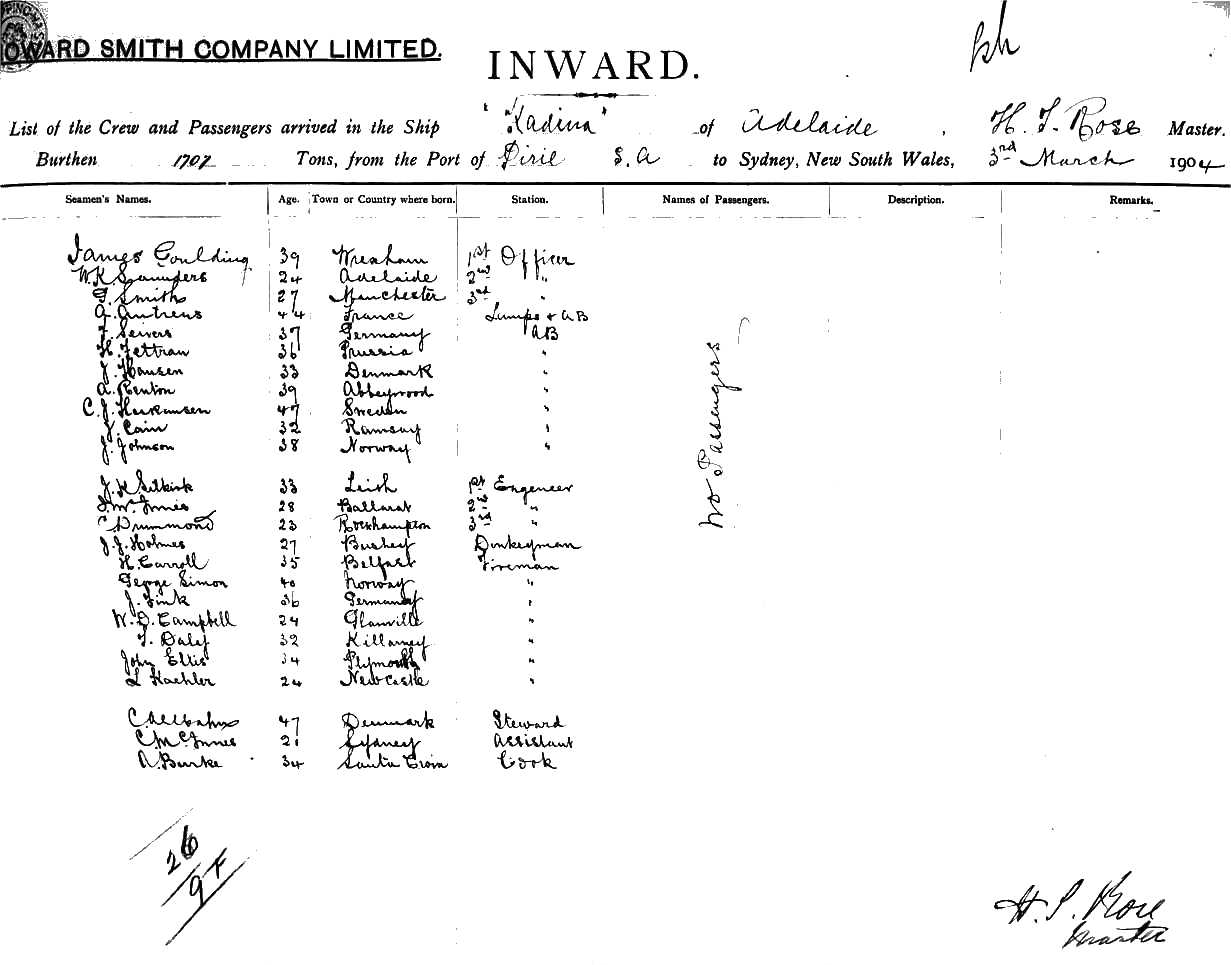 OWARD SMITH COMPANY LIMITED.
INWARD.
List of the Crew and Passengers arrived in the Ship "Kadina" of Adelaide, H. T. Rose Master.
Burthen 1707 Tons, from the Port of Pirie S.A to Sydney, New South Wales, 3rd March 1904
Seamen's Names. Age. Town or Country where born. Station. Names of Passengers. Description. Remarks.
James Goulding 39 Wrexham 1st Officer
W.K. Saunders 24 Adelaide 2nd "
G. Smith 27 Manchester 3rd "
44 France Lamps & AB
37 Germany AB
36 Prussia "
J. Hansen 33 Denmark "
A. Renton 39 Abbeywood "
C. J. 47 Sweden "
J. Cain 32 Ramsay "
J. Johnson 38 Norway "
J. K Selkirk 33 Leith 1st Engeneer
J. McInnes 28 Ballarat 2nd "
C Drummond 23 Rockhampton 3rd "
J. J. Holmes 27 Bushey Donkeyman
H. Carroll 35 Belfast Fireman
George Simon 40 Norway "
J. Fink 36 Germany "
W. D. Campbell 24 Glanville "
T. Daly 32 Killarney "
John Ellis 34 Plymouth "
L Kaehler 24 Newcastle "
47 Denmark Steward
C. McInnes 21 Sydney Assistant
A. Burke 34 Santa Croix Cook
No Passengers
26
H. T. Rose
Master